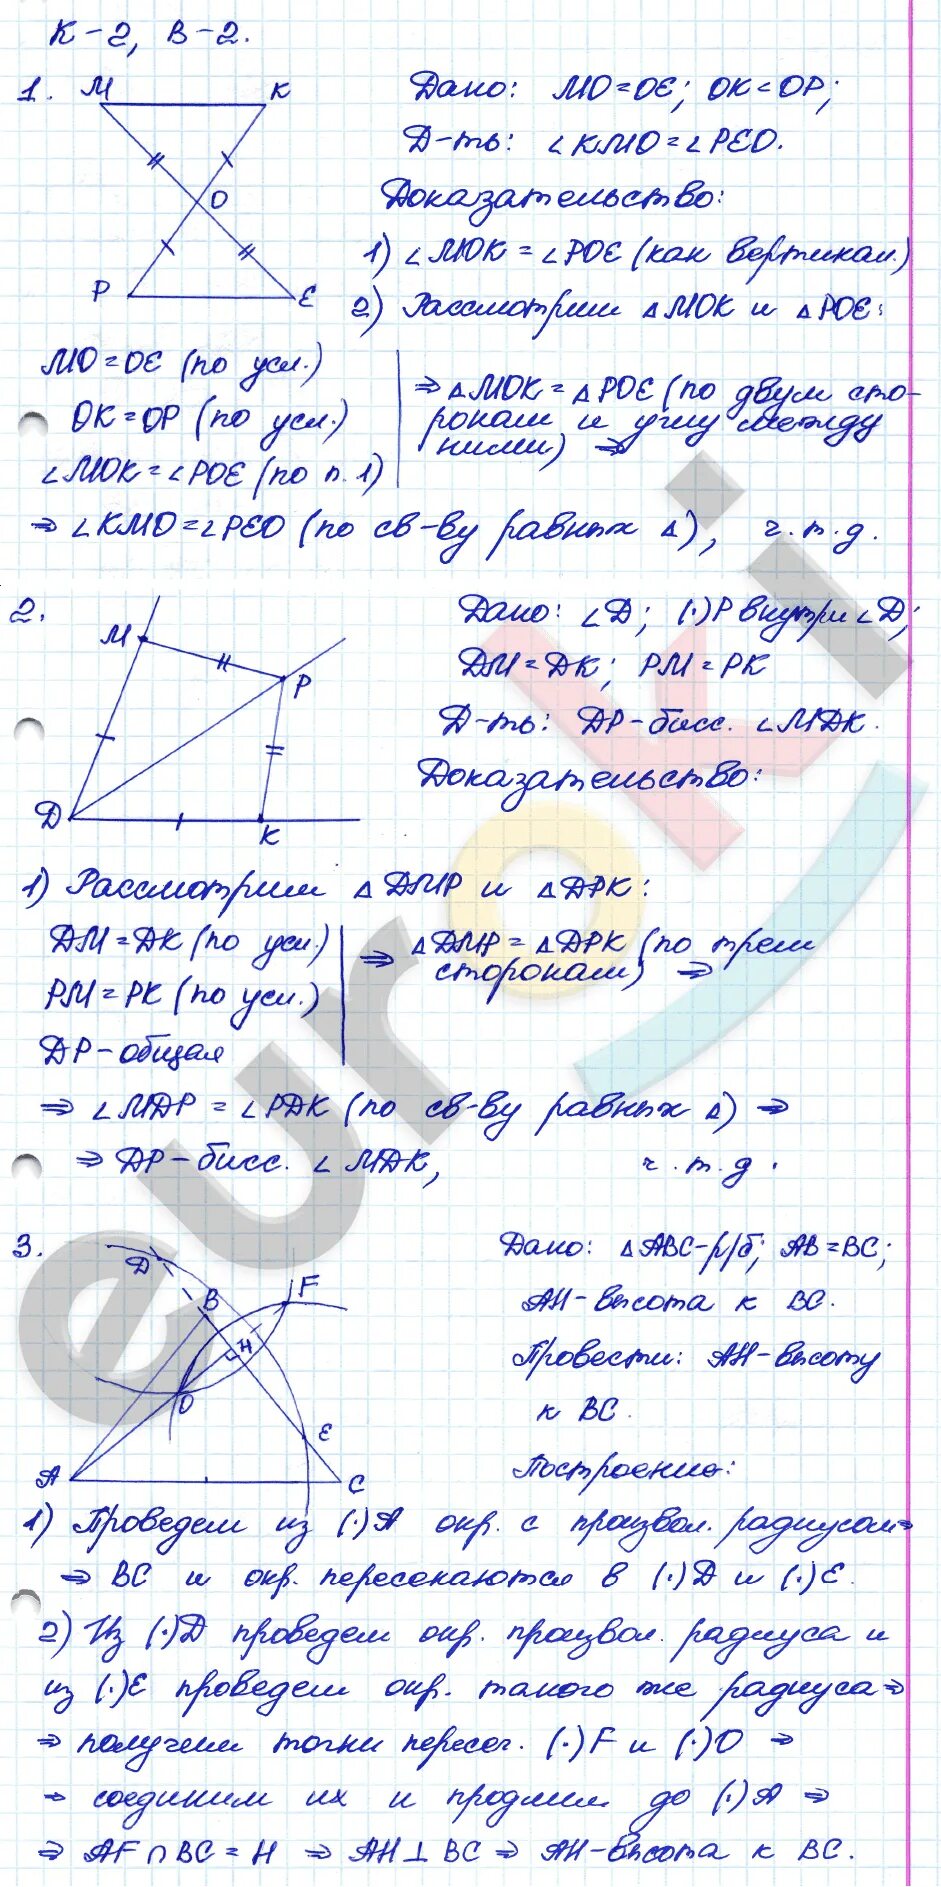 К-2, В-2.
1. М К
О
Р Е
Дано: МО=ОЕ; ОК=ОР;
Д-ть: ∠КМО=∠РЕО.
Доказательство:
1) ∠МОК = ∠РОЕ (как вертикал.)
2) Рассмотрим △МОК и △РОЕ:
МО=ОЕ (по усл.)
ОК=ОР (по усл.)
∠МОК=∠РОЕ (по п.1)
⇒ △МОК = △РОЕ (по двум сто-
ронам и углу между
ними) ⇒
⇒ ∠КМО=∠РЕО (по св-ву равных △), ч.т.д.
2. М
Р
D
К
Дано: ∠D; (·)Р внутри ∠D;
DМ=DК; РМ=РК
Д-ть: DР-бисс. ∠МDК.
Доказательство:
1) Рассмотрим △DМР и △DРК:
DМ=DК (по усл.)
РМ=РК (по усл.)
DР-общая
⇒ △DМР=△DРК (по трем
сторонам) ⇒
⇒ ∠МDР = ∠РDК (по св-ву равных △) ⇒
⇒ DР-бисс. ∠МDК, ч.т.д.
3. D
В F
Н
О
Е
А С
Дано: △АВС-р/б; АВ=ВС;
АН-высота к ВС.
Провести: АН-высоту
к ВС.
Построение:
1) Проведем из (·)А окр. с произвол. радиусом⇒
⇒ ВС и окр. пересекаются в (·)D и (·)Е.
2) Из (·)D проведем окр. произвол. радиуса и
из (·)Е проведем окр. такого же радиуса⇒
⇒ получим точки пересеч. (·)F и (·)О ⇒
⇒ соединим их и продлим до (·)А ⇒
⇒ АF∩ВС=Н ⇒ АН⊥ВС ⇒ АН-высота к ВС.
euroki